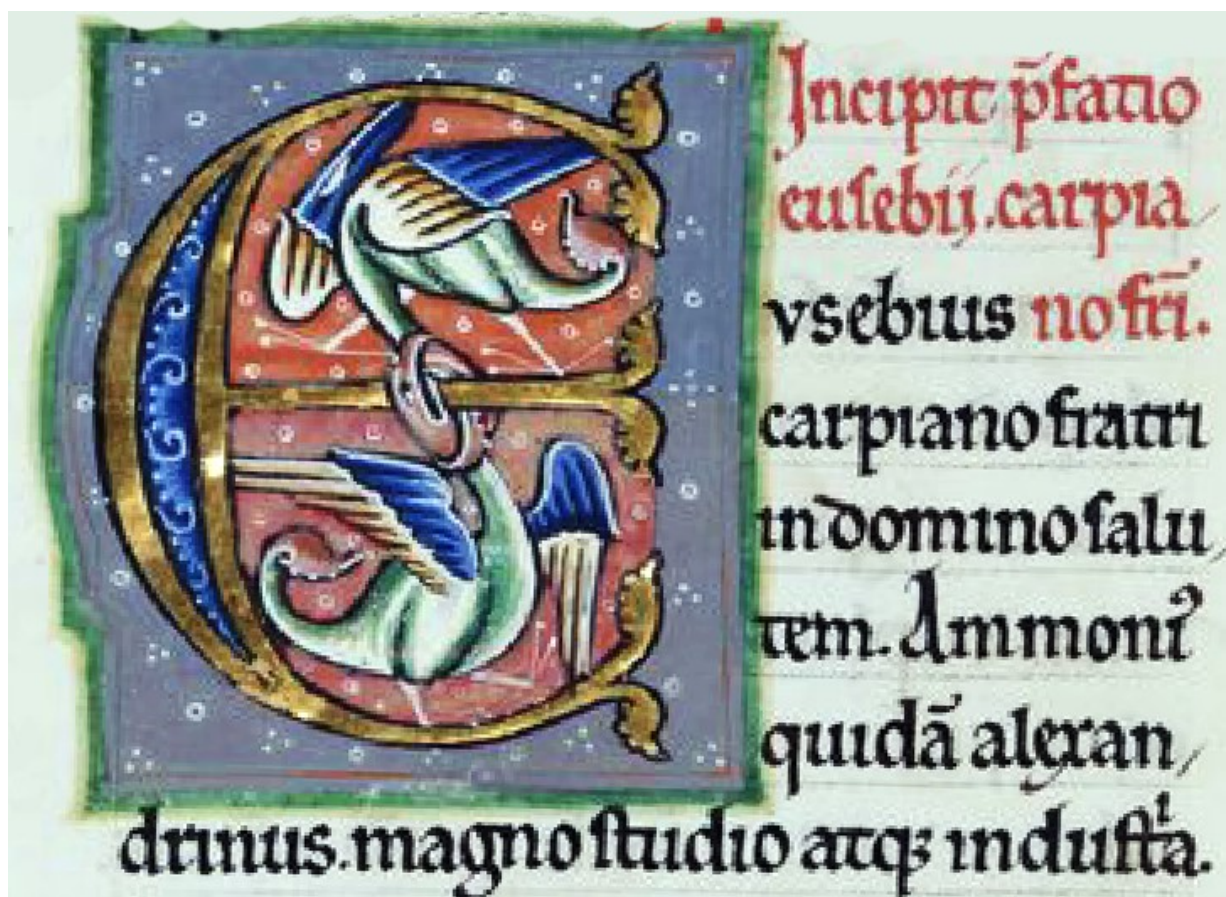 Incipit p̄fatio
euſebij. carpia
vsebius no fr̄i.
carpiano fratri
in domino ſalu
tem. Ammoniꝰ
quidā alexan
drinus. magno ſtudio atqꝫ induſtͥa.